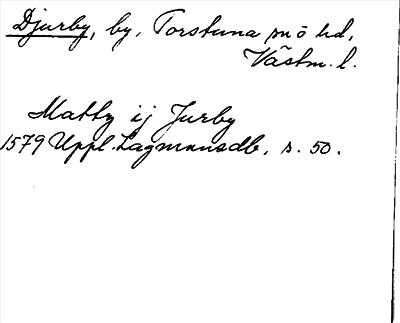 Djurby, by, Torstuna sn o hd,
Västm. l.
Matts ij Jurby
1579 Uppl. Lagmansdb, s. 50.